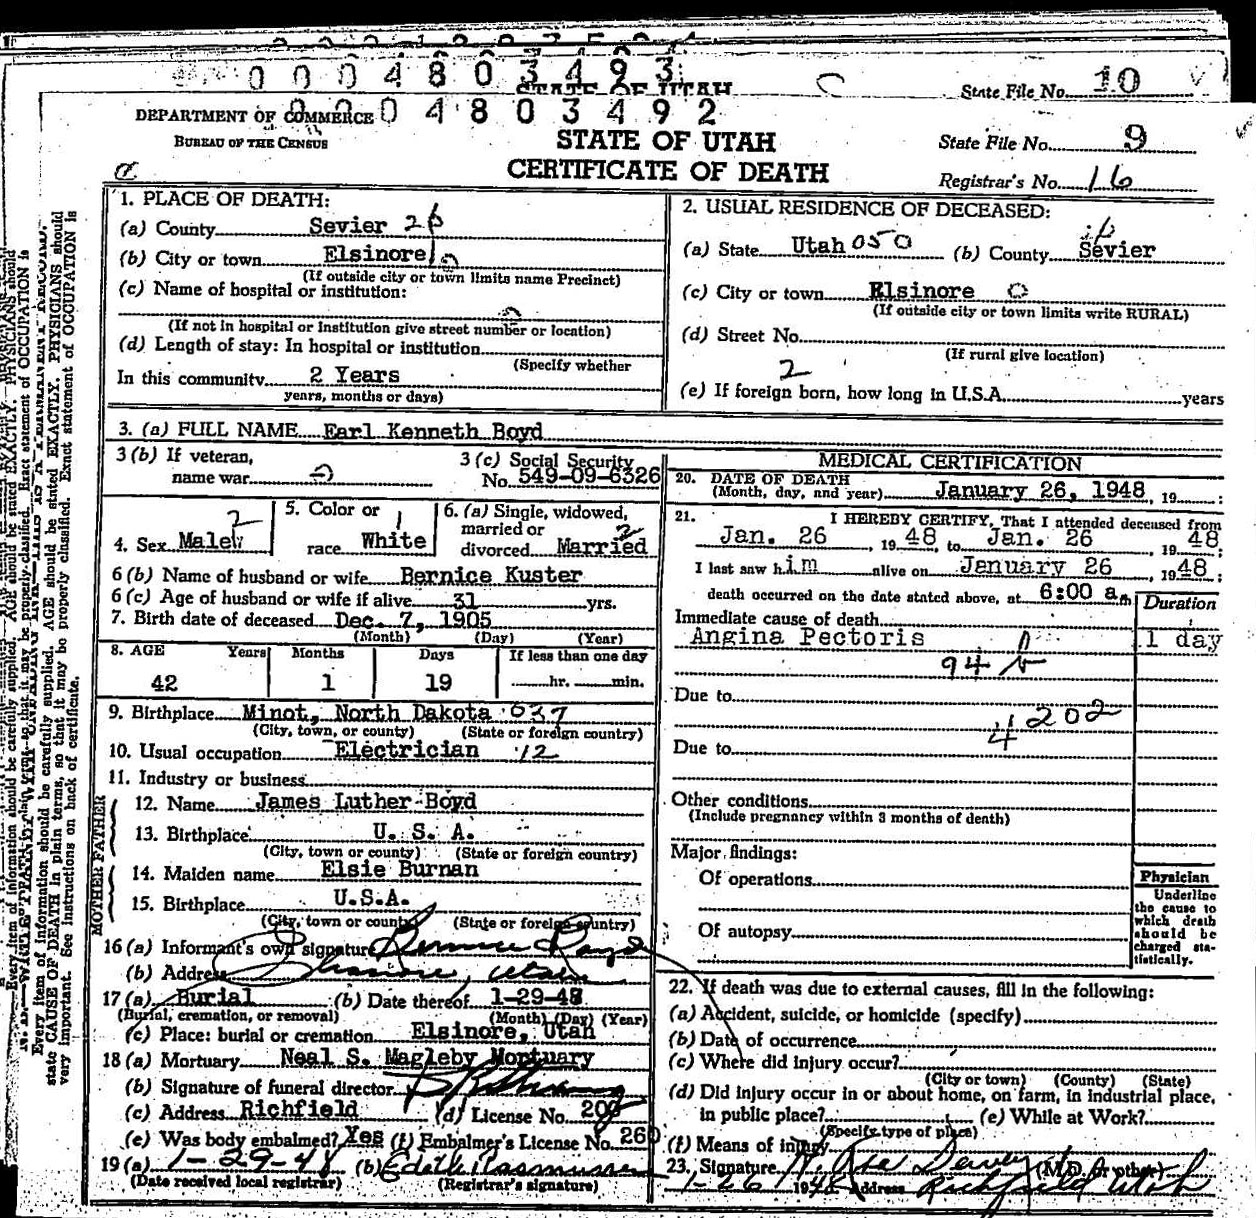 0004803493
STATE OF UTAH
State File No. 10
DEPARTMENT OF COMMERCE 0004803492
BUREAU OF THE CENSUS
STATE OF UTAH
State File No. 9
CERTIFICATE OF DEATH
Registrar's No. 16
1. PLACE OF DEATH:
(a) County Sevier 26
(b) City or town Elsinore
(If outside city or town limits name Precinct)
(c) Name of hospital or institution:
(If not in hospital or institution give street number or location)
(d) Length of stay: In hospital or institution
(Specify whether
In this community 2 Years
years, months or days)
2. USUAL RESIDENCE OF DECEASED:
(a) State Utah 050 (b) County Sevier
(c) City or town Elsinore 0
(If outside city or town limits write RURAL)
(d) Street No.
(If rural give location)
2
(e) If foreign born, how long in U.S.A. years
3. (a) FULL NAME Earl Kenneth Boyd
3 (b) If veteran,
name war
3 (c) Social Security
No. 549-09-6326
4. Sex Male 2
5. Color or
race White 1
6. (a) Single, widowed,
married or
divorced Married 2
6 (b) Name of husband or wife Bernice Kuster
6 (c) Age of husband or wife if alive 31 yrs.
7. Birth date of deceased Dec. 7, 1905
(Month) (Day) (Year)
8. AGE Years Months Days If less than one day
42 1 19 hr. min.
9. Birthplace Minot, North Dakota 037
(City, town, or county) (State or foreign country)
10. Usual occupation Electrician 12
11. Industry or business
FATHER
12. Name James Luther Boyd
13. Birthplace U. S. A.
(City, town or county) (State or foreign country)
MOTHER
14. Maiden name Elsie Burnan
15. Birthplace U.S.A.
(City, town or county) (State or foreign country)
16 (a) Informant's own signature Bernice Boyd
(b) Address Elsinore, Utah
17 (a) Burial (b) Date thereof 1-29-48
(Burial, cremation, or removal) (Month) (Day) (Year)
(c) Place: burial or cremation Elsinore, Utah
18 (a) Mortuary Neal S. Magleby Mortuary
(b) Signature of funeral director
(c) Address Richfield (d) License No.
(e) Was body embalmed? Yes (f) Embalmer's License No. 260
19 (a) 1-29-48 (b) Edith Rasmussen
(Date received local registrar) (Registrar's signature)
MEDICAL CERTIFICATION
20. DATE OF DEATH
(Month, day, and year) January 26, 1948, 19 ;
21. I HEREBY CERTIFY, That I attended deceased from
Jan. 26, 1948, to Jan. 26, 1948;
I last saw him alive on January 26, 1948;
death occurred on the date stated above, at 6:00 a.m
Duration
Immediate cause of death
Angina Pectoris 1 day
94
Due to
4202
Due to
Other conditions
(Include pregnancy within 3 months of death)
Major findings:
Of operations
Of autopsy
Physician
Underline
the cause to
which death
should be
charged sta-
tistically.
22. If death was due to external causes, fill in the following:
(a) Accident, suicide, or homicide (specify)
(b) Date of occurrence
(c) Where did injury occur?
(City or town) (County) (State)
(d) Did injury occur in or about home, on farm, in industrial place,
in public place? (e) While at Work?
(Specify type of place)
(f) Means of injury
23. Signature (M.D. or other)
1-26 1948 Address Richfield Utah
Every item of information should be carefully supplied. AGE should be stated EXACTLY. PHYSICIANS should
state CAUSE OF DEATH in plain terms, so that it may be properly classified. Exact statement of OCCUPATION is
very important. See instructions on back of certificate.